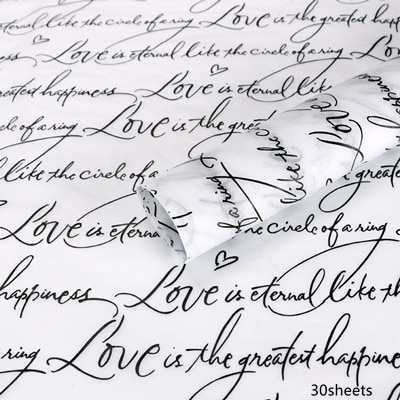 eternal like the circle of a ring Love is the greatest happ
ss Love is eternal like the circle of a ring Lo
greatest happiness Love is eternal like
cle of a ring Love is the grea
l like the circle of a
Love is eterna
a ring
like the
Love
happiness
greatest
the circle of a ring
happiness Love is eternal like th
ring Love is the greatest happine
30sheets